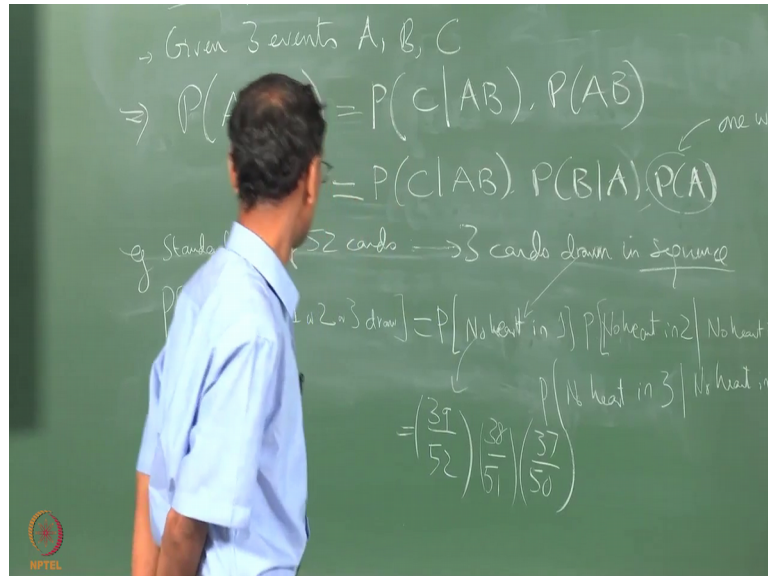 → Given 3 events A, B, C
⇒ P(A = P(C|AB). P(AB)
one
= P(C|AB) P(B|A) P(A)
eg 52 cards → 3 cards drawn in sequence
3 draw] = P[No heart in 1] P[No heart in 2 | No heart
P[No heart in 3 | No heart in
= (39/52) (38/51) (37/50)
NPTEL